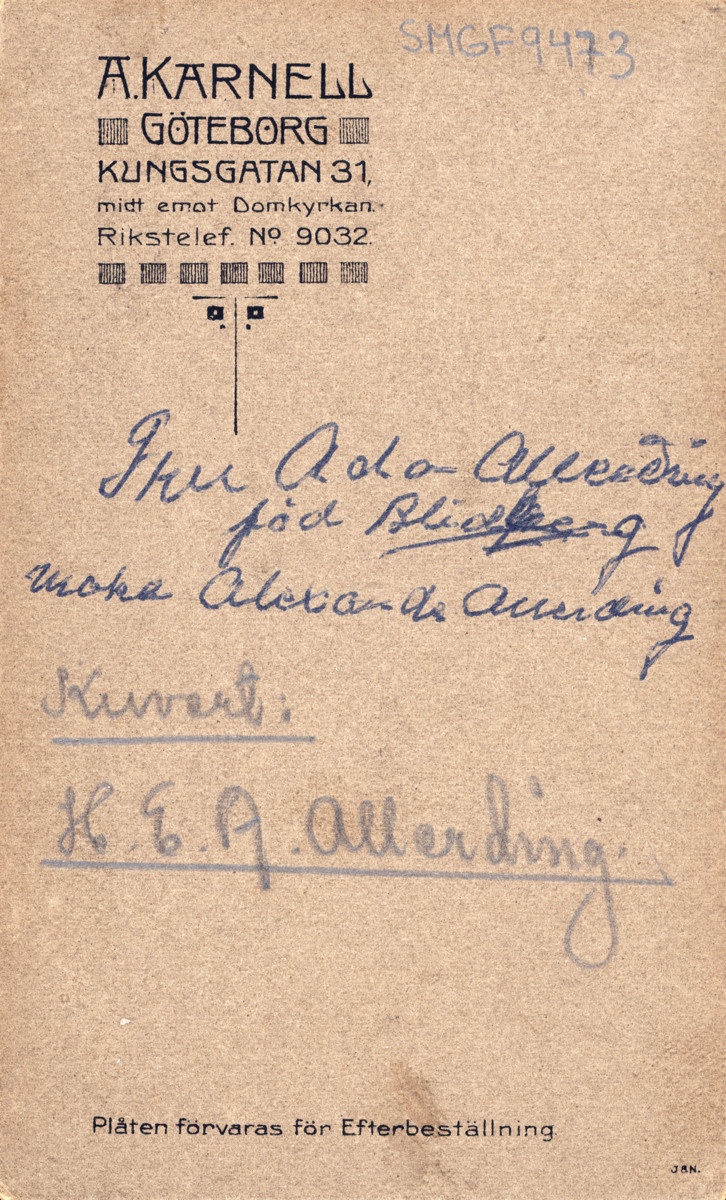 SMGF9473
A. KARNELL
GÖTEBORG
KUNGSGATAN 31,
midt emot Domkyrkan.
Rikstelef. No 9032.
Fru Ada Allerding
född Blidberg
Alexander Allerding
Kuvert:
H. E. A. Allerding.
Plåten förvaras för Efterbeställning.
J&N.